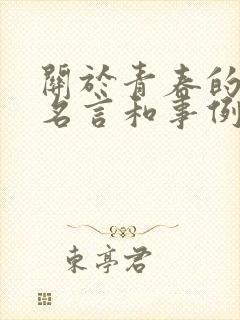 關於青春的
名言和事例
東亭君